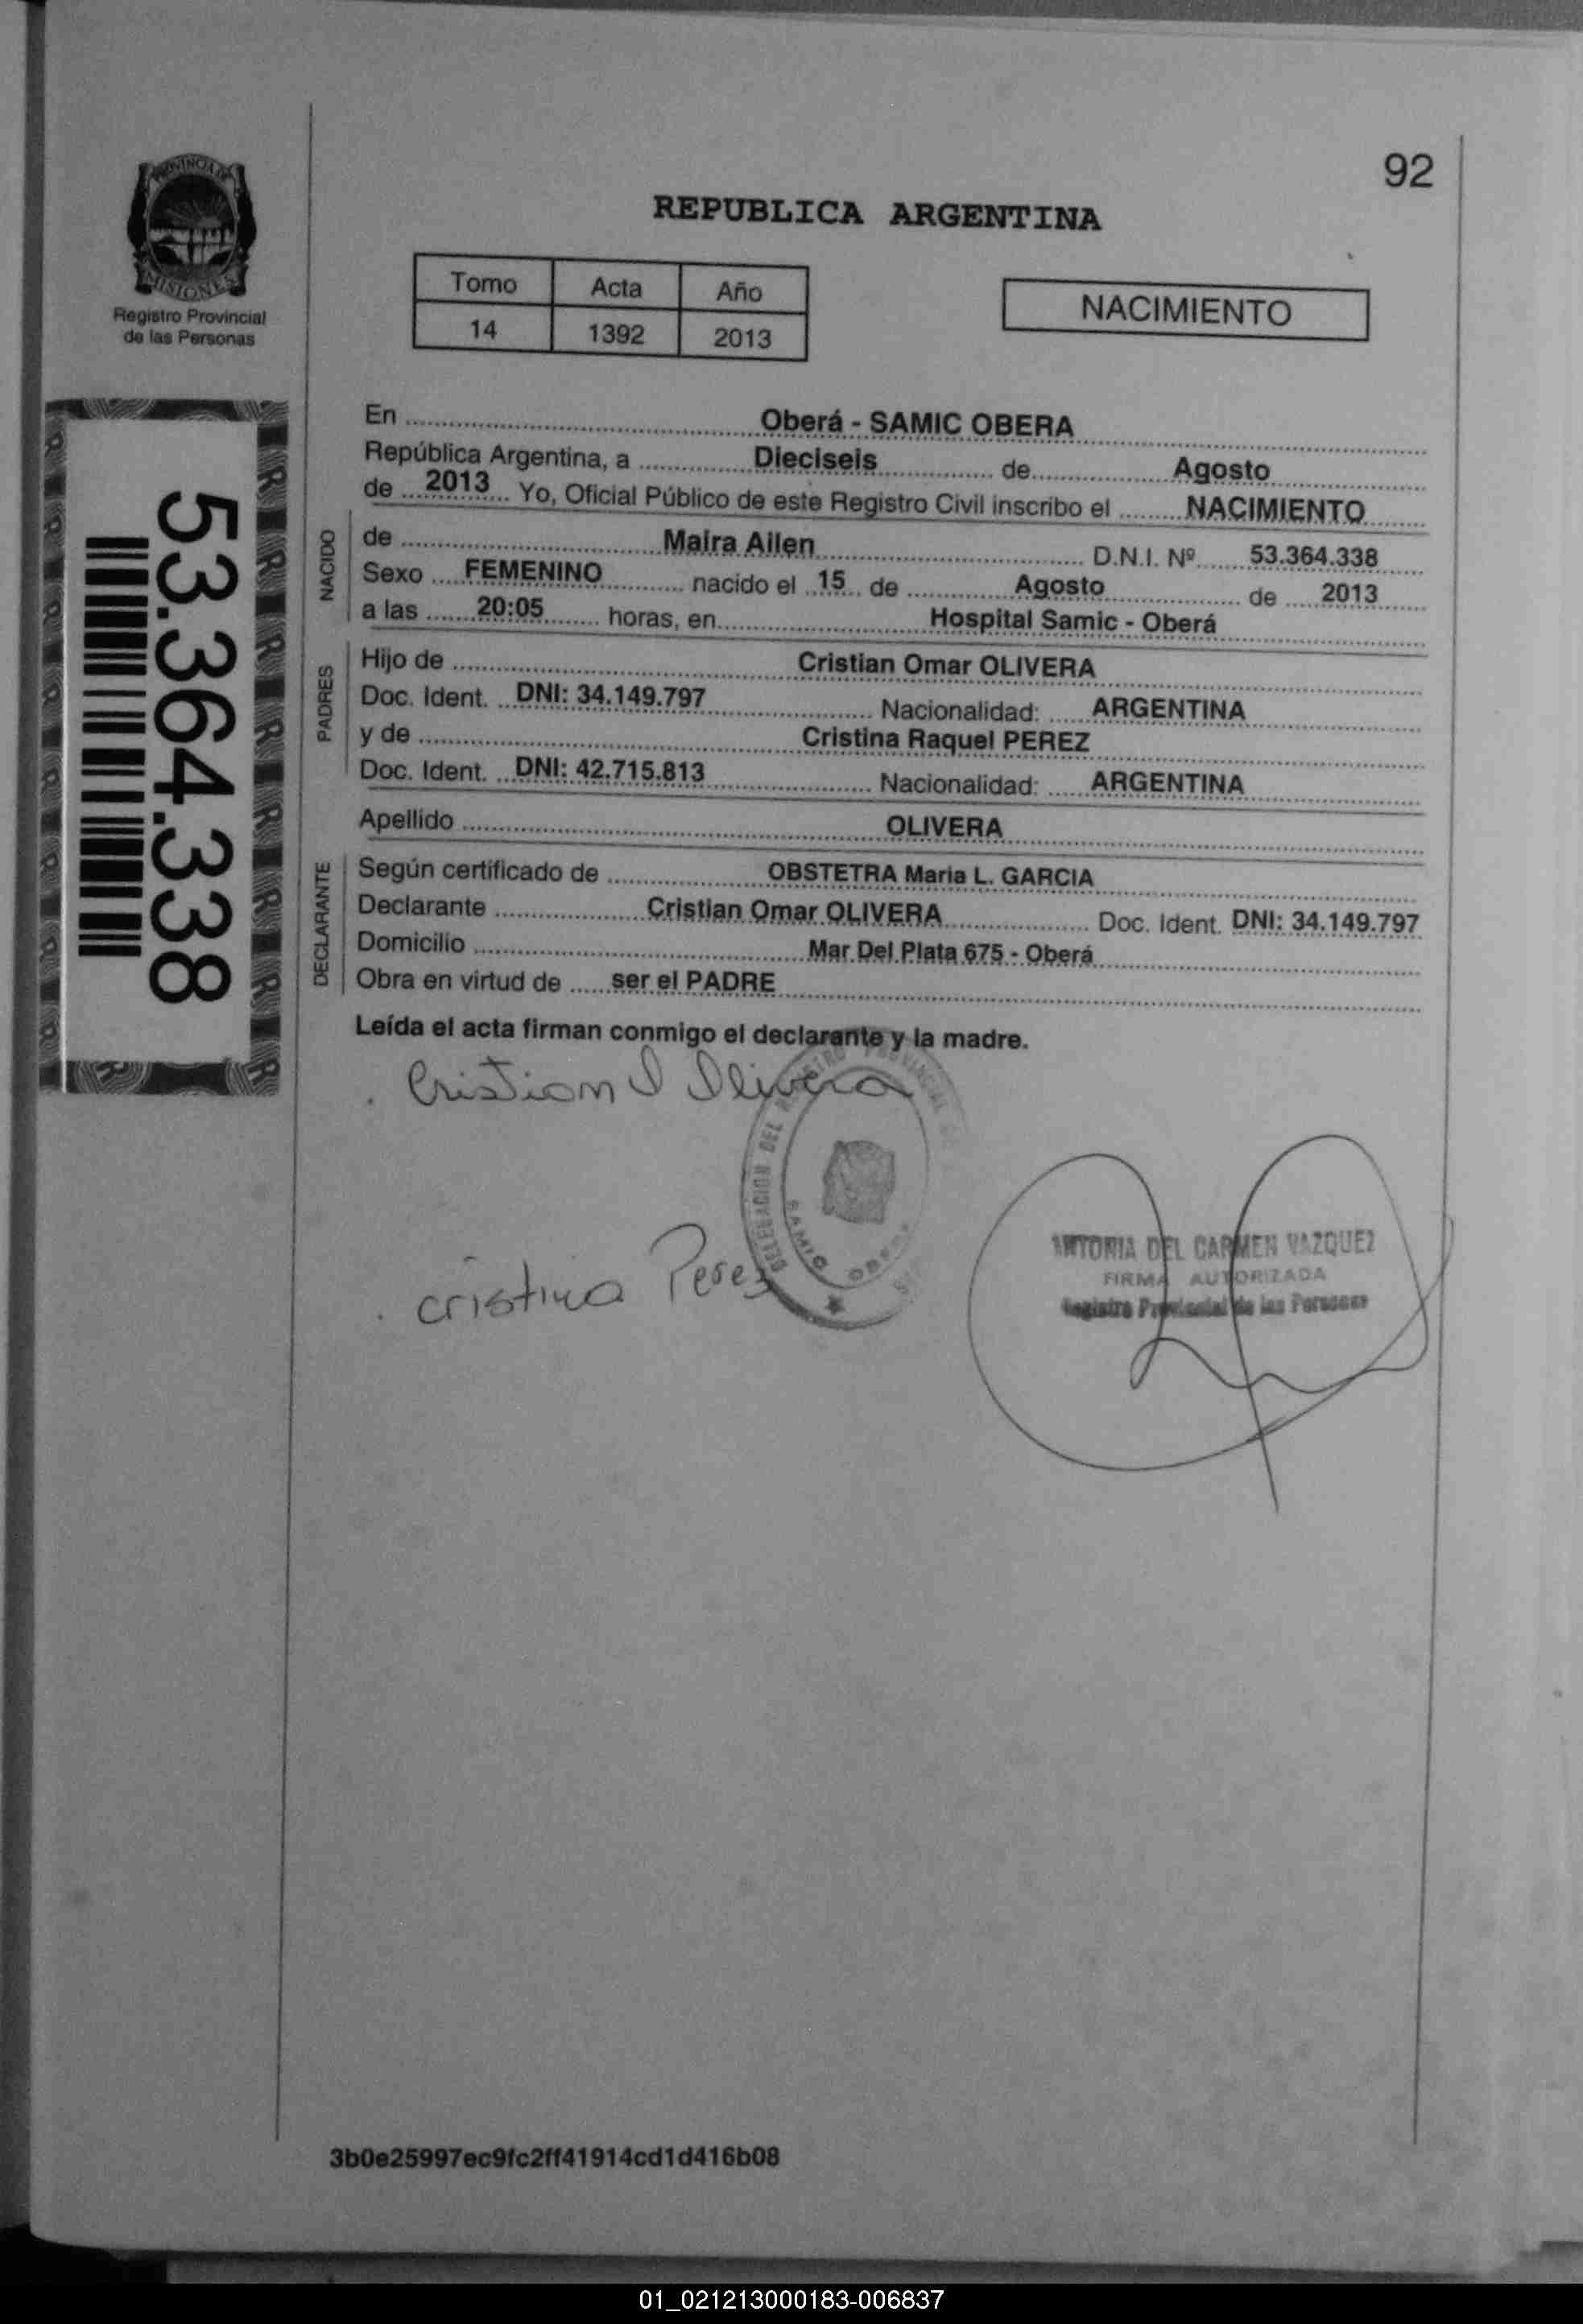 92
PROVINCIA DE
MISIONES
Registro Provincial
de las Personas
REPUBLICA ARGENTINA
Tomo Acta Año
14 1392 2013
NACIMIENTO
53.364.338
En Oberá - SAMIC OBERA
República Argentina, a Dieciseis de Agosto
de 2013 Yo, Oficial Público de este Registro Civil inscribo el NACIMIENTO
NACIDO
de Maira Ailen D.N.I. Nº 53.364.338
Sexo FEMENINO nacido el 15 de Agosto de 2013
a las 20:05 horas, en Hospital Samic - Oberá
PADRES
Hijo de Cristian Omar OLIVERA
Doc. Ident. DNI: 34.149.797 Nacionalidad: ARGENTINA
y de Cristina Raquel PEREZ
Doc. Ident. DNI: 42.715.813 Nacionalidad: ARGENTINA
Apellido OLIVERA
DECLARANTE
Según certificado de OBSTETRA Maria L. GARCIA
Declarante Cristian Omar OLIVERA Doc. Ident. DNI: 34.149.797
Domicilio Mar Del Plata 675 - Oberá
Obra en virtud de ser el PADRE
Leída el acta firman conmigo el declarante y la madre.
Cristian O Olivera
DELEGACION DEL REGISTRO PROVINCIAL
SAMIC OBERA
cristina Perez
ANTONIA DEL CARMEN VAZQUEZ
FIRMA AUTORIZADA
Registro Provincial de las Personas
3b0e25997ec9fc2ff41914cd1d416b08
01_021213000183-006837